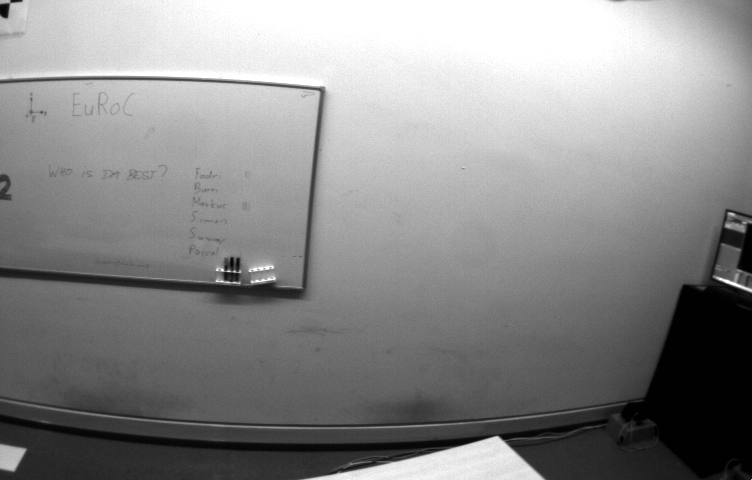 EuRoC
WHO IS DA BEST?
Fadri II
Burri
Markus III
Simon
Sammy
Pascal
2